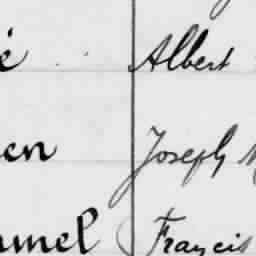 é Albert
en Joseph
mel Francis